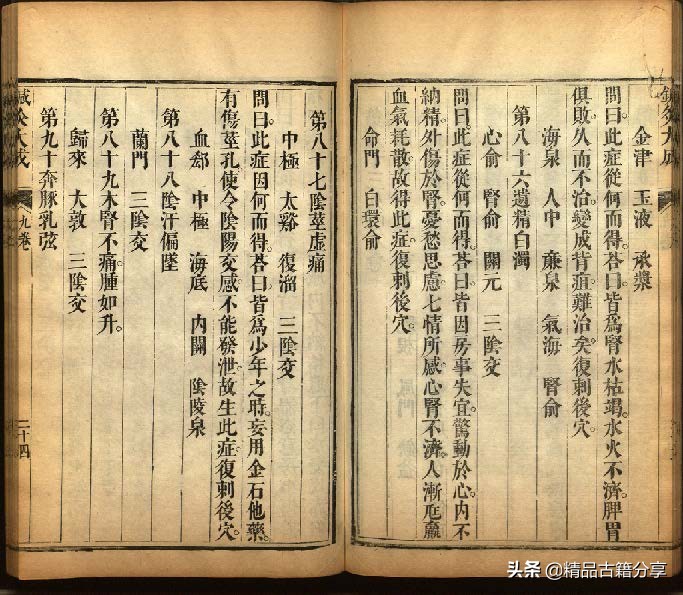 鍼灸大成
金津 玉液 承漿
問曰此症從何而得荅曰皆爲腎水枯竭水火不濟脾胃
俱敗久而不治變成背疽難治矣復刺後穴
海泉 人中 廉泉 氣海 腎俞
第八十六遺精白濁
心俞 腎俞 關元 三陰交
問曰此症從何而得荅曰皆因房事失宜驚動於心內不
納精外傷於腎憂愁思慮七情所感心腎不濟人漸尫羸
血氣耗散故得此症復刺後穴
命門 白環俞
第八十七陰莖虛痛
中極 太谿 復溜 三陰交
問曰此症因何而得荅曰皆爲少年之時妄用金石他藥
有傷莖孔使令陰陽交感不能發泄故生此症復刺後穴
血郄 中極 海底 內關 陰陵泉
第八十八陰汗偏墜
蘭門 三陰交
第八十九木腎不痛腫如升
歸來 大敦 三陰交
第九十奔豚乳弦
鍼灸大成
九卷
二十四
头条 @精品古籍分享